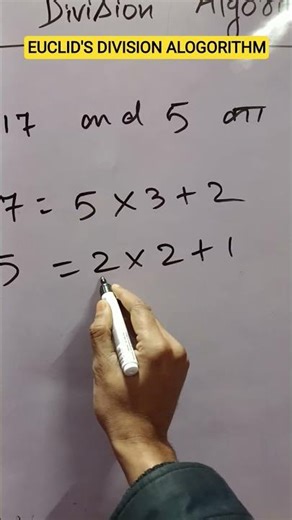 Division Algori
EUCLID'S DIVISION ALOGORITHM
17 and 5 का
7 = 5 × 3 + 2
5 = 2 × 2 + 1